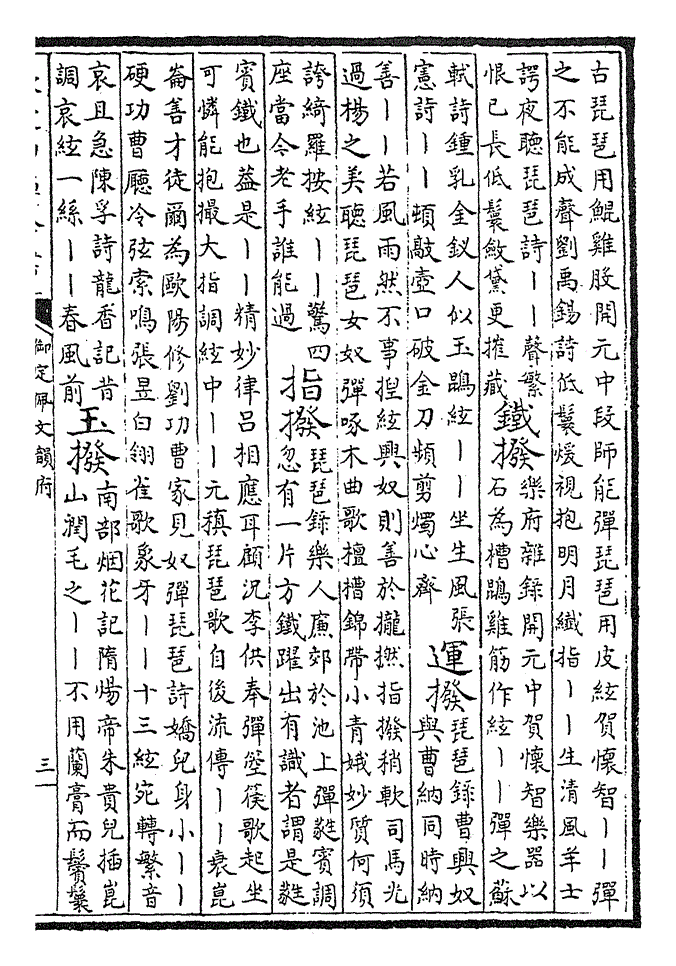 古琵琶用鯤雞股開元中段師能彈琵琶用皮絃賀懷智丨丨彈
之不能成聲劉禹錫詩低鬟煖視抱明月纖指丨丨生清風羊士
諤夜聽琵琶詩丨丨聲繁
恨已長低鬟斂黛更摧藏
鐵撥
樂府雜錄開元中賀懷智樂器以
石為槽鵾雞筋作絃丨丨彈之蘇
軾詩鍾乳金釵人似玉鵾絃丨丨坐生風張
憲詩丨丨頻敲壺口破金刀頻剪燭心齊
運撥
琵琶錄曹興奴
與曹納同時納
善丨丨若風雨然不事揑絃興奴則善於攏撚指撥稍軟司馬光
過楊之美聽琵琶女奴彈啄木曲歌檀槽錦帶小青娥妙質何須
誇綺羅按絃丨丨驚四
座當今老手誰能過
指撥
琵琶錄樂人廉郊於池上彈蕤賓調
忽有一片方鐵躍出有識者謂是蕤
賓鐵也葢是丨丨精妙律呂相應耳顧況李供奉彈箜篌歌起坐
可憐能抱撮大指調絃中丨丨元稹琵琶歌自後流傳丨丨衰崑
崙善才徒爾為歐陽修劉功曹家見奴彈琵琶詩嬌兒身小丨丨
硬功曹廳冷弦索鳴張昱白翎雀歌象牙丨丨十三絃宛轉繁音
哀且急陳孚詩龍香記昔
調哀絃一絲丨丨春風前
玉撥
南部烟花記隋煬帝朱貴兒插崑
山潤毛之丨丨不用蘭膏而鬢鬟
御定佩文韻府
三